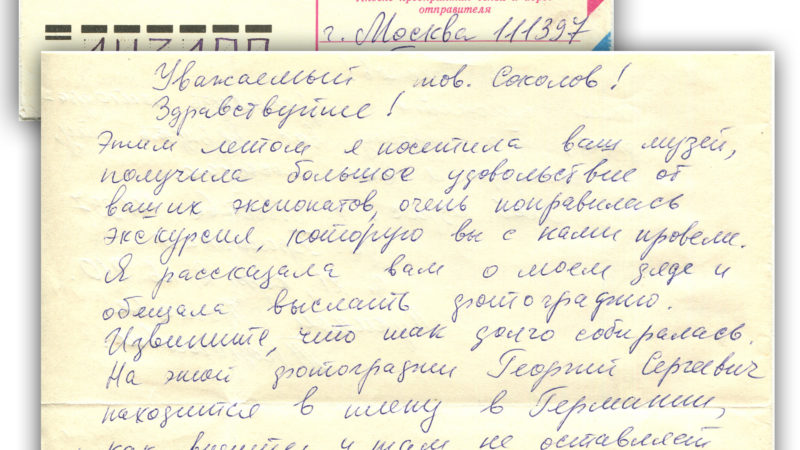 отправителя
г. Москва 111397
143100
Уважаемый тов. Соколов!
Здравствуйте!
Этим летом я посетила ваш музей,
получила большое удовольствие от
ваших экспонатов, очень понравилась
экскурсия, которую вы с нами провели.
Я рассказала вам о моем дяде и
обещала выслать фотографию.
Извините, что так долго собиралась.
На этой фотографии Георгий Сергеевич
находится в плену в Германии,
как видите, и там не оставляет